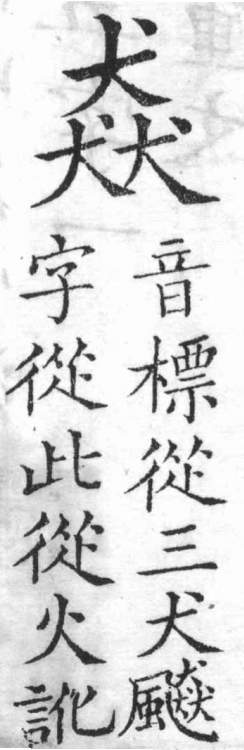 猋
音標從三犬飊
字從此從火訛